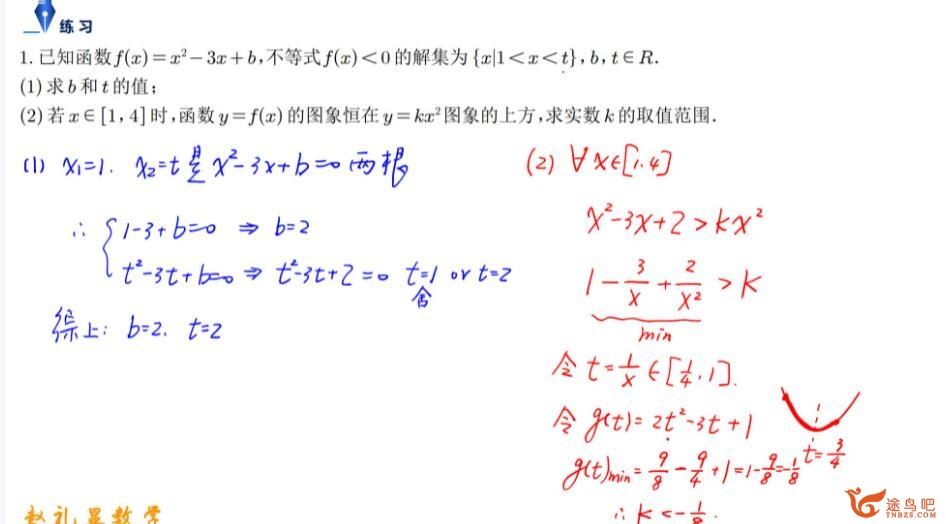 练习
1.已知函数f(x)=x²-3x+b,不等式f(x)<0的解集为{x|1<x<t},b,t∈R.
(1)求b和t的值;
(2)若x∈[1,4]时,函数y=f(x)的图象恒在y=kx²图象的上方,求实数k的取值范围.
(1) x₁=1. x₂=t是x²-3x+b=0两根
∴ {1-3+b=0 ⇒ b=2
t²-3t+b=0 ⇒ t²-3t+2=0 t=1 or t=2
舍
综上: b=2. t=2
(2) ∀x∈[1.4]
x²-3x+2>kx²
1-3/x+2/x²>k
min
令t=1/x∈[1/4.1].
令g(t)=2t²-3t+1
t=3/4
g(t)min=9/8-9/4+1=1-9/8=-1/8
∴k<-1/8.
赵礼显数学
途鸟吧
TNBZS.COM